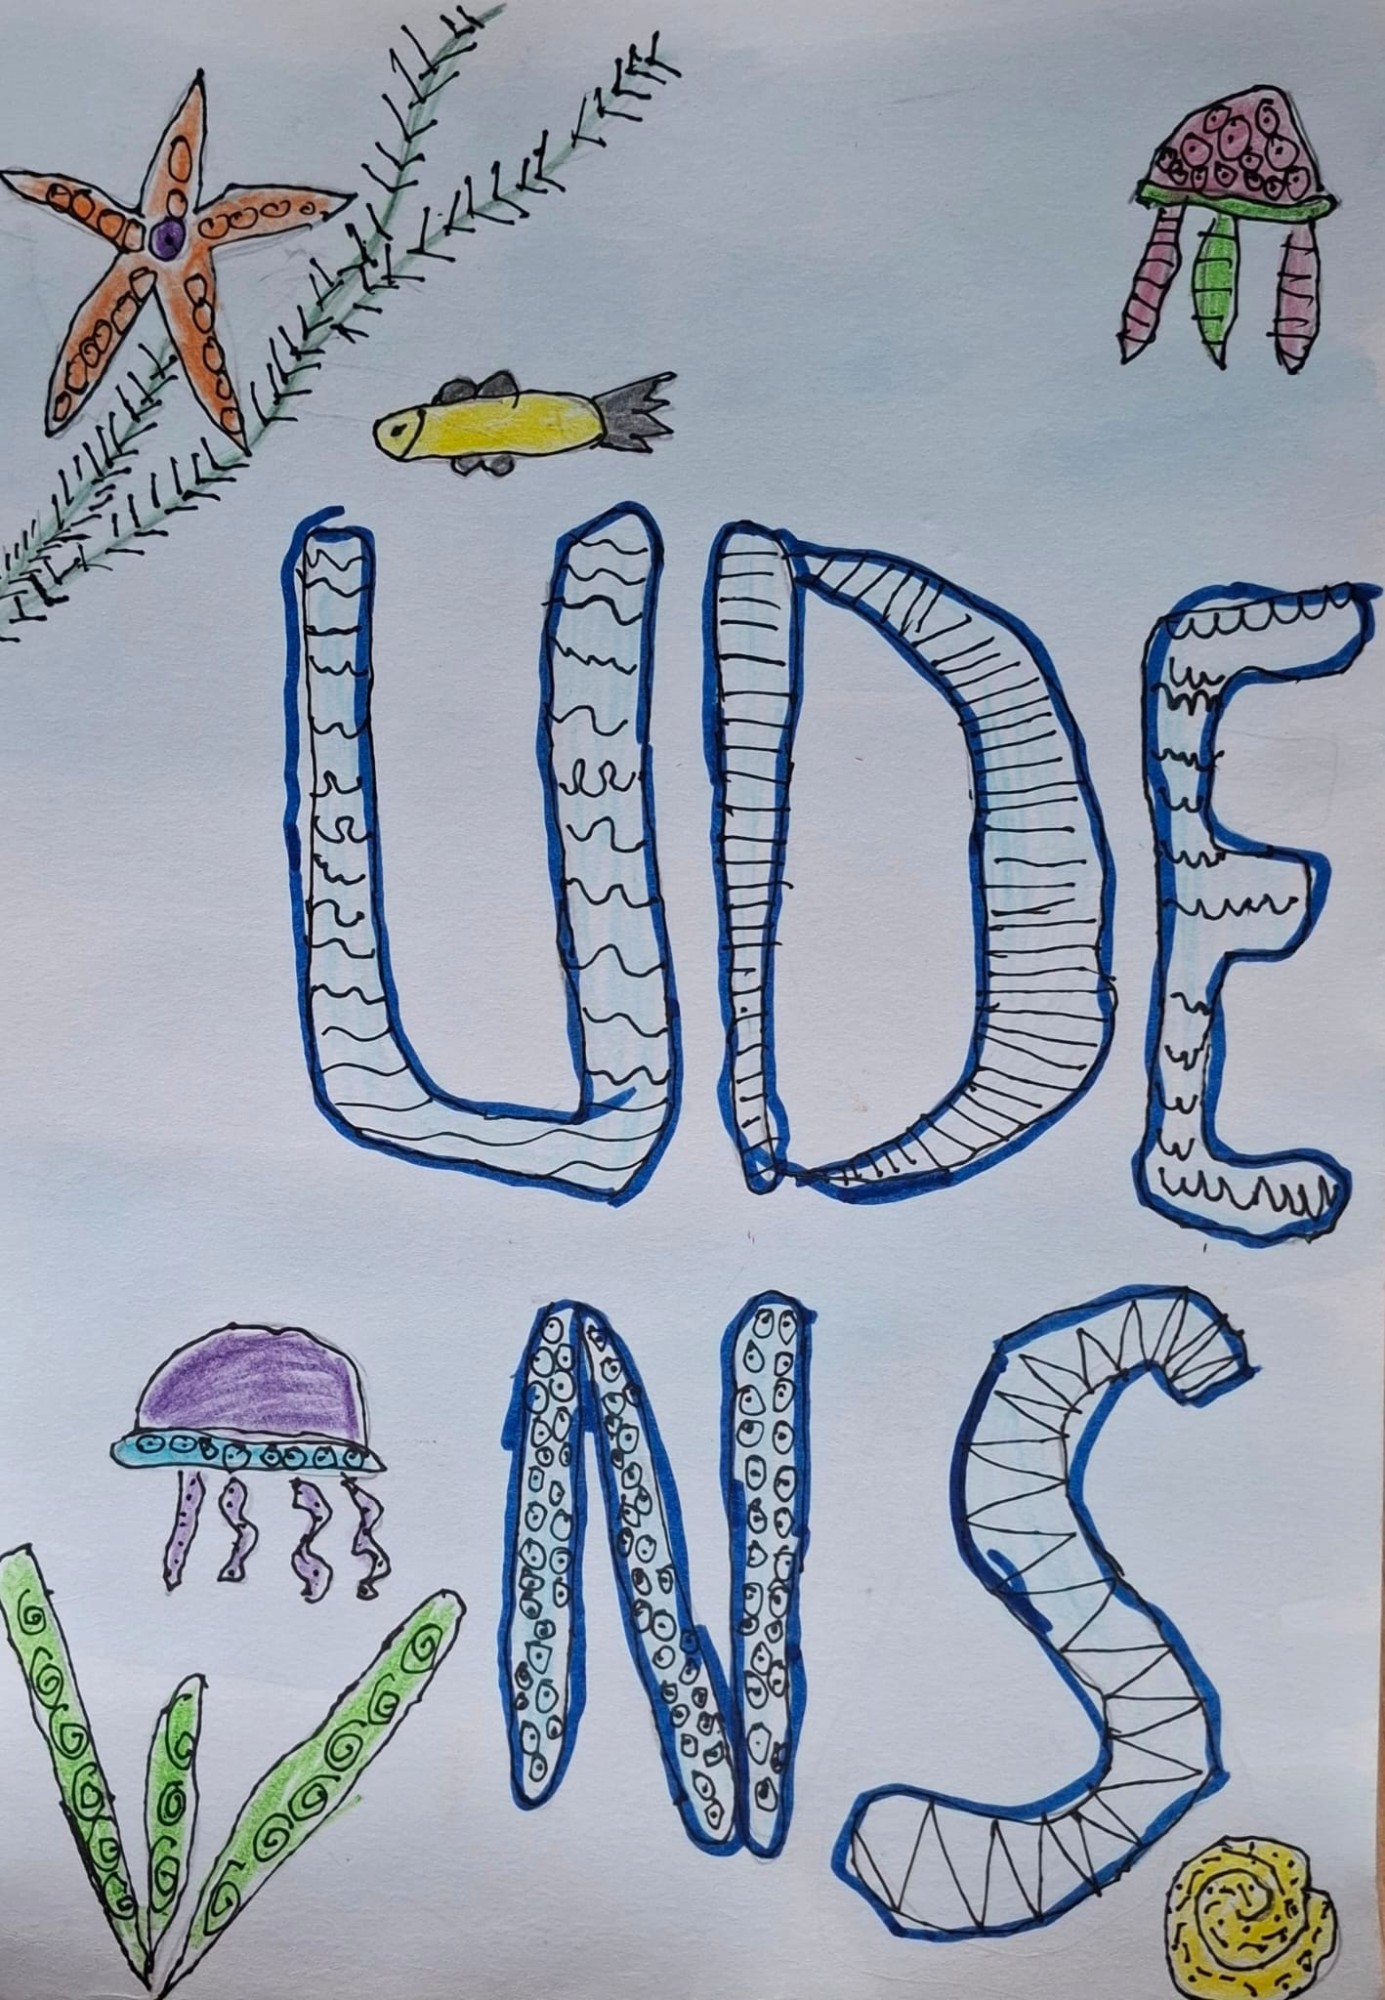 UDE
NS